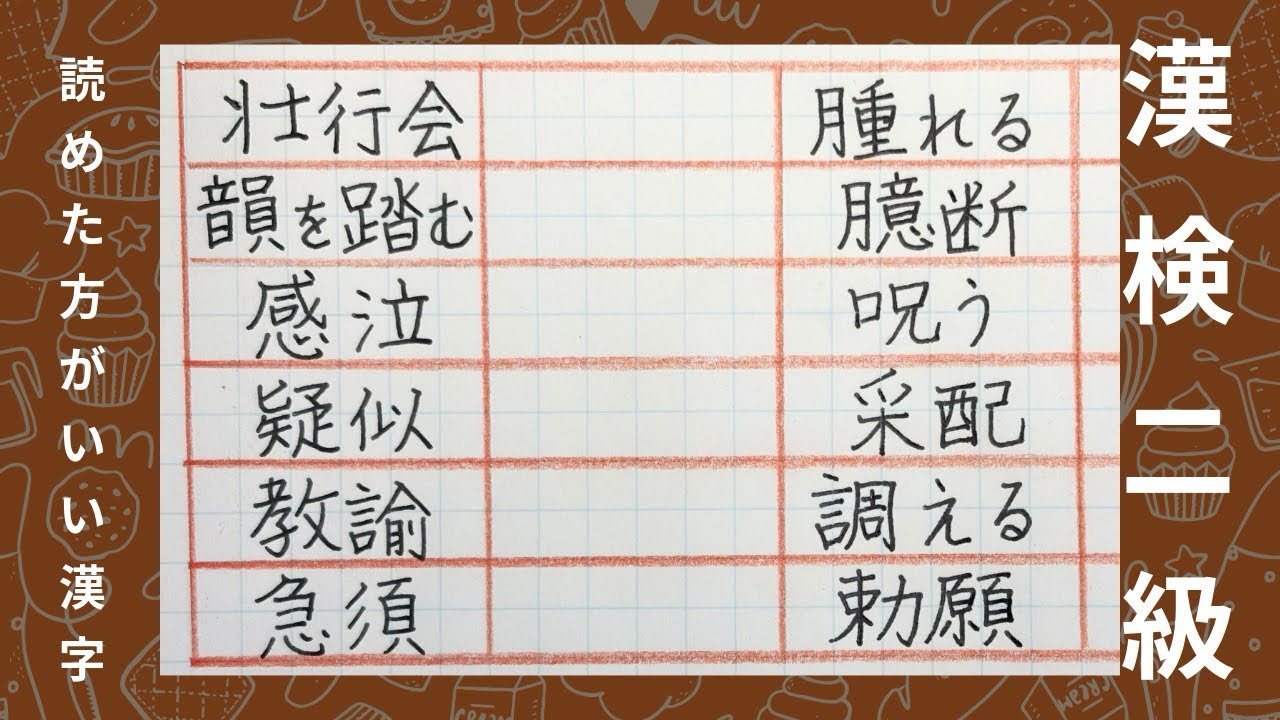 漢検二級
読めた方がいい漢字
壮行会
腫れる
韻を踏む
臆断
感泣
呪う
疑似
采配
教諭
調える
急須
勅願